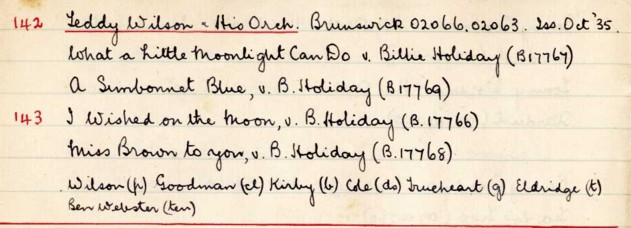 142 Teddy Wilson & His Orch. Brunswick 02066.02063. Iss. Oct '35.
What a Little Moonlight Can Do v. Billie Holiday (B17767)
A Sunbonnet Blue, v. B. Holiday (B17769)
143 I Wished on the Moon, v. B. Holiday (B.17766)
Miss Brown to you, v. B. Holiday (B.17768)
Wilson (p) Goodman (cl) Kirby (b) Cole (ds) Trueheart (g) Eldridge (t)
Ben Webster (ten)